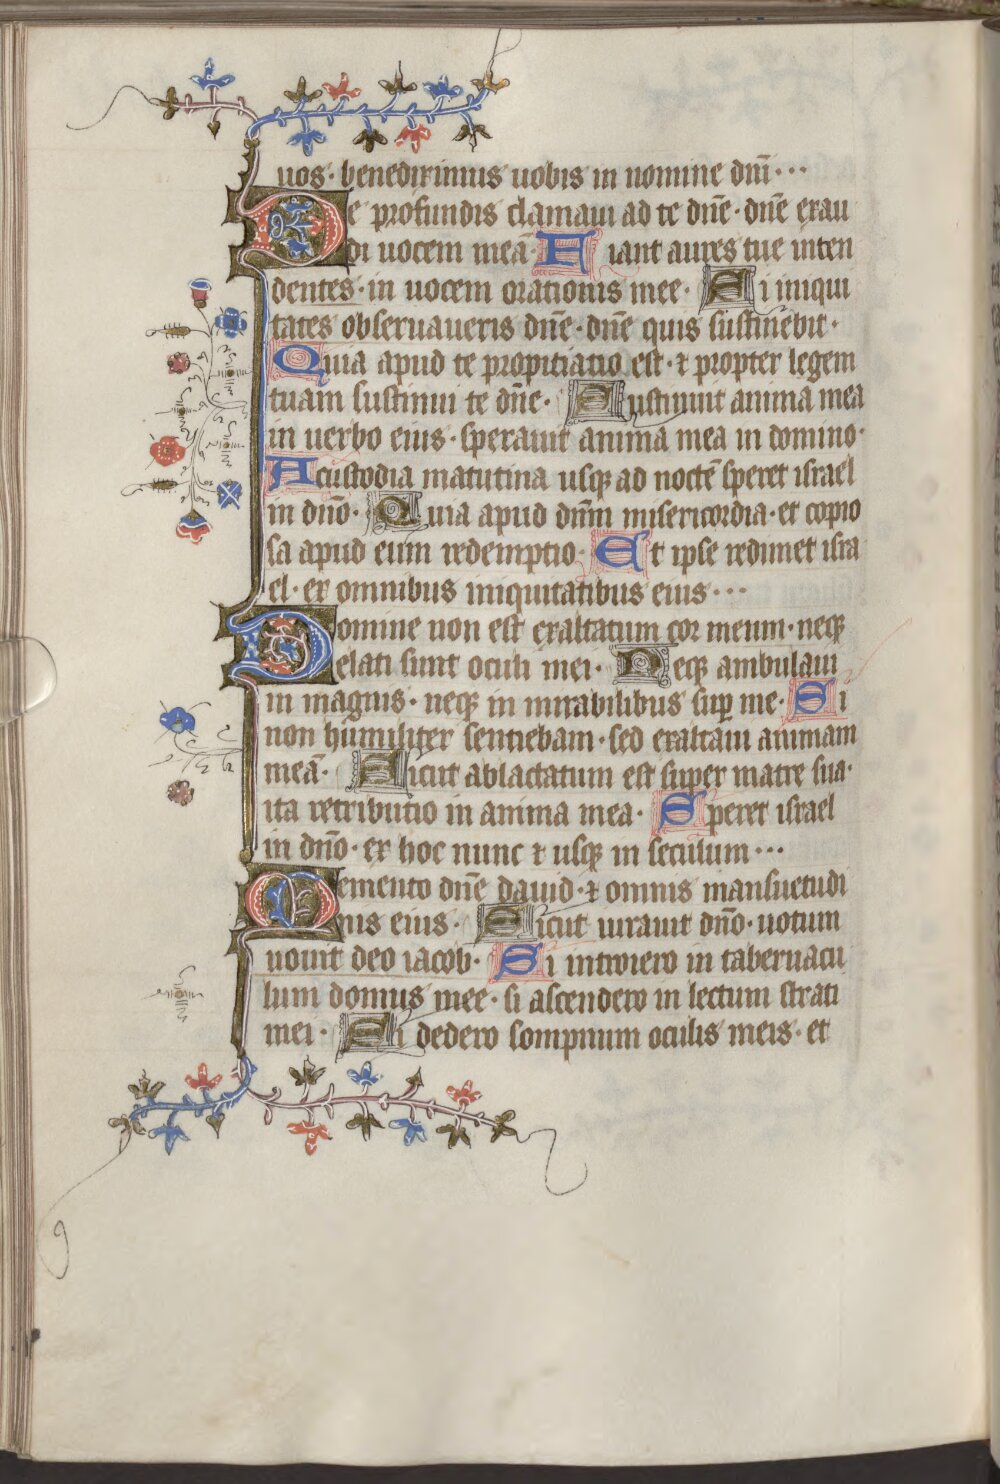 uos· benediximus uobis in nomine dnī···
De profundis clamaui ad te dn̄e· dn̄e exau
di uocem meā· Fiant aures tue inten
dentes· in uocem orationis mee· Si iniqui
tates obseruaueris dn̄e· dn̄e quis sustinebit·
Quia apud te propitiatio est· ⁊ propter legem
tuam sustinui te dn̄e· Sustinuit anima mea
in uerbo eius· sperauit anima mea in domino·
A custodia matutina usqꝫ ad noctē speret israel
in dn̄o· Quia apud dn̄m misericordia· et copio
sa apud eum redemptio· Et ipse redimet isra
el· ex omnibus iniquitatibus eius···
Domine non est exaltatum cor meum· neqꝫ
elati sunt oculi mei· Neqꝫ ambulaui
in magnis· neqꝫ in mirabilibus suꝑ me· Si
non humiliter sentiebam· sed exaltaui animam
meā· Sicut ablactatum est super matre sua·
ita retributio in anima mea· Speret israel
in dn̄o· ex hoc nunc ⁊ usqꝫ in seculum···
Memento dn̄e dauid· ⁊ omnis mansuetudi
nis eius· Sicut iurauit dn̄o· uotum
uouit deo iacob· Si introiero in tabernacu
lum domus mee· si ascendero in lectum strati
mei· Si dedero sompnum oculis meis· et